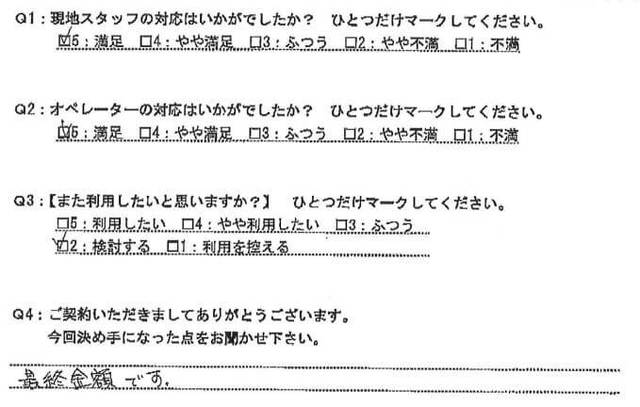 Q1：現地スタッフの対応はいかがでしたか？　ひとつだけマークしてください。
☑5：満足　□4：やや満足　□3：ふつう　□2：やや不満　□1：不満
Q2：オペレーターの対応はいかがでしたか？　ひとつだけマークしてください。
☑5：満足　□4：やや満足　□3：ふつう　□2：やや不満　□1：不満
Q3：【また利用したいと思いますか？】　ひとつだけマークしてください。
□5：利用したい　□4：やや利用したい　□3：ふつう
☑2：検討する　□1：利用を控える
Q4：ご契約いただきましてありがとうございます。
今回決め手になった点をお聞かせ下さい。
最終金額です.